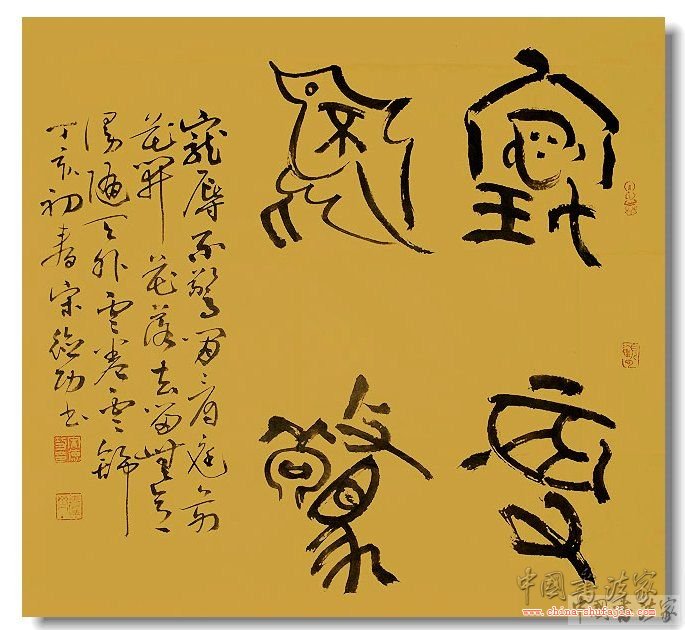 寵辱
不驚
寵辱不驚閒看庭前
花開花落去留無意
漫隨天外雲卷雲舒
丁亥初春宋
中國書法家
www.china-shufajia.com